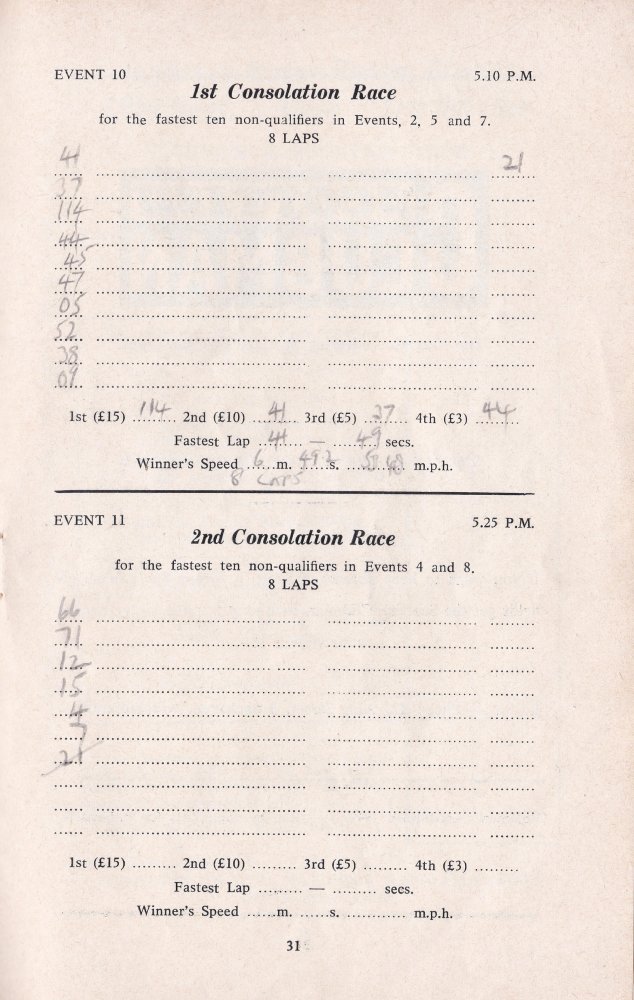 EVENT 10 5.10 P.M.
1st Consolation Race
for the fastest ten non-qualifiers in Events, 2, 5 and 7.
8 LAPS
41 21
37
114
44
45
47
05
52
38
09
1st (£15) 114 2nd (£10) 41 3rd (£5) 37 4th (£3) 44
Fastest Lap 41 — 49 secs.
Winner's Speed 6 m. 49.2 s. m.p.h.
8 LAPS
EVENT 11 5.25 P.M.
2nd Consolation Race
for the fastest ten non-qualifiers in Events 4 and 8.
8 LAPS
66
71
12
15
4
7
21
1st (£15) ......... 2nd (£10) ......... 3rd (£5) ......... 4th (£3) .........
Fastest Lap ......... — ......... secs.
Winner's Speed ......m. ......s. ............ m.p.h.
31